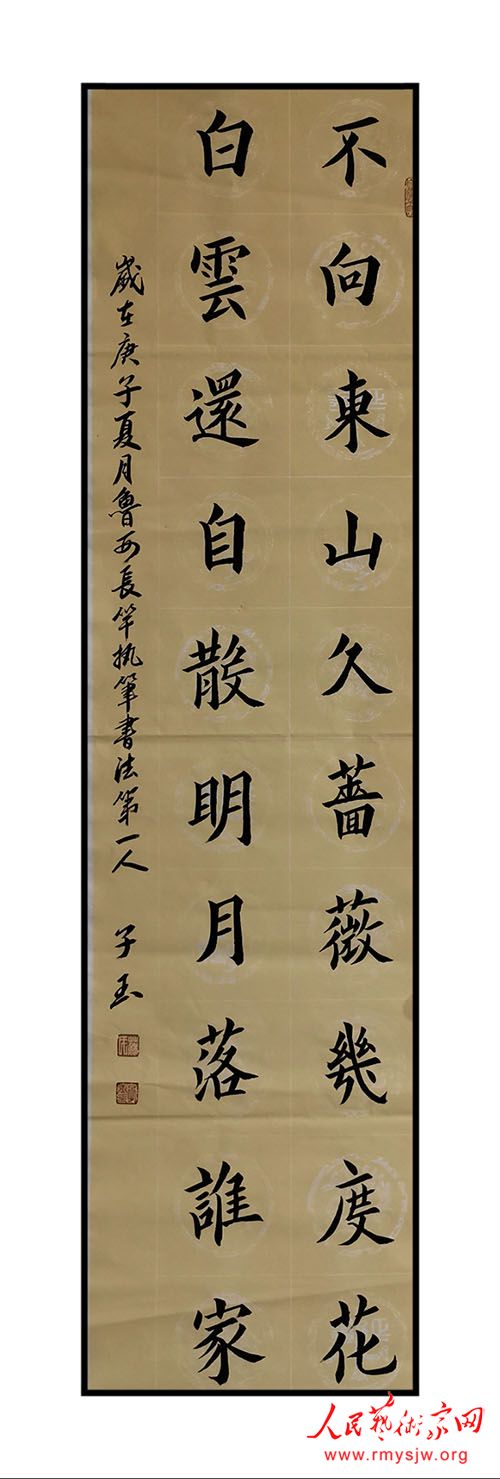 不向東山久薔薇幾度花
白雲還自散明月落誰家
歲在庚子夏月魯西長竿执筆書法第一人 子玉
人民藝術家网
www.rmysjw.org